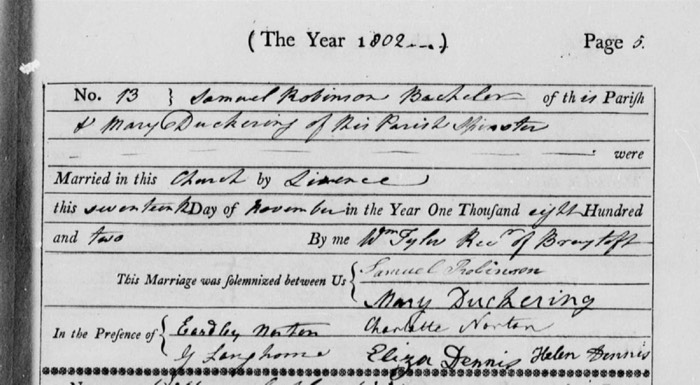 ( The Year 1802 --. ) Page 5.
No. 13 } Samuel Robinson Bachelor of this Parish
& Mary Duckering of this Parish Spinster
were
Married in this Church by Licence
this seventeenth Day of November in the Year One Thousand eight Hundred
and two By me Wm Tyler Recr of Braytoft
This Marriage was solemnized between Us { Samuel Robinson
Mary Duckering
In the Presence of { Eardley Norton Charlotte Norton
Langhorne Eliza Dennis Helen Dennis